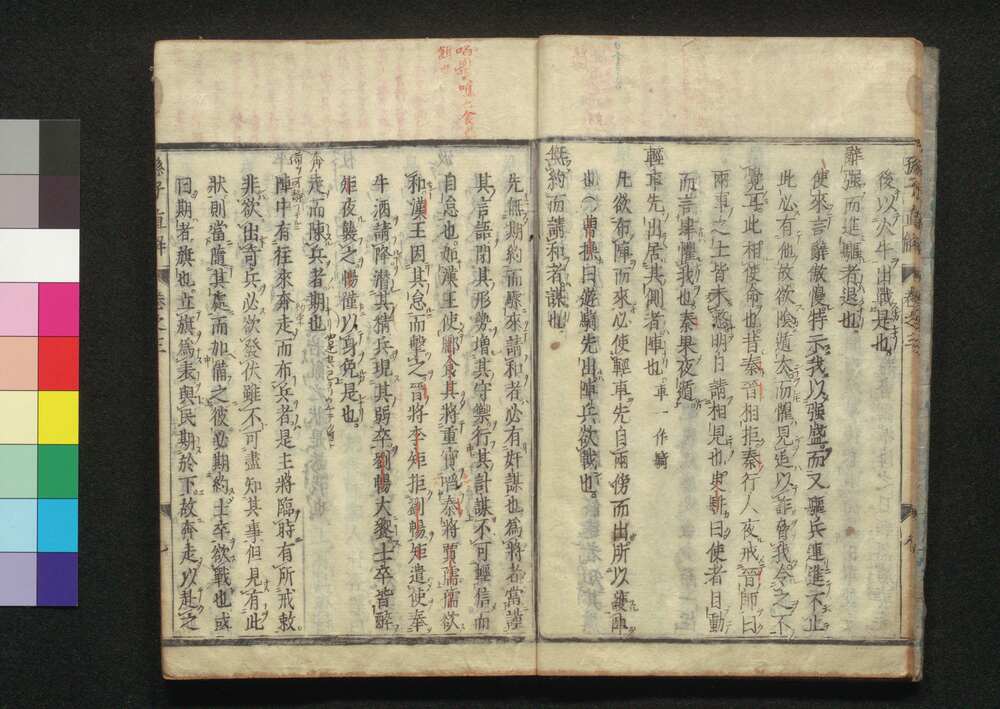 孫子直解 卷之三 九
後以火牛出戰是也
辭强而進驅者退也
使來言辭傲慢特示我以强盛而又驅兵連進不止
此必有他故欲陰遁去而懼見追以詐脅我令之不
覺耳此相使命也昔秦晉相拒秦行人夜戒晉師曰
兩軍之士皆未憖明日請相見也臾駢曰使者目動
而言肆懼我也秦果夜遁
輕車先出居其側者陣也 車一作騎
凡欲布陣而來必使輕車先自兩傍而出所以護陣
也曹操曰遊騎先出陣兵欲戰也
無約而請和者謀也
先無期約而驟來請和者必有奸謀也為將者當謹
其言語閉其形勢增其守禦行其計謀不可輕信而
自怠也如漢王使酈食其將重寶啗秦將賈孺孺欲
和漢王因其怠而擊之晉將李矩拒劉暢矩遣使奉
牛酒請降潛其精兵現其弱卒劉暢大饗士卒皆醉
矩夜襲之暢僅以身免是也
奔走而陳兵者期也
陣中有往來奔走而布兵者是主將臨時有所戒敕
非欲出奇兵必欲發伏雖不可盡知其事但見有此
狀則當隨其處而加備之彼必期約士卒欲戰也或
曰期者旗也立旗為表與民期於下故奔走以赴之
孫子直解 卷之三